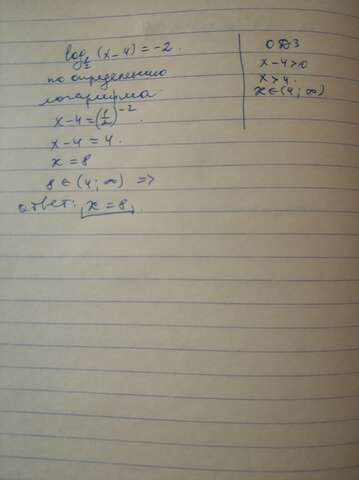 log½ (x-4) = -2.
по определению
логарифма
x-4 = (1/2)^-2.
x-4 = 4.
x = 8
8 ∈ (4; ∞) =>
ответ: x = 8.
ОДЗ
x-4>0
x>4.
x ∈ (4; ∞)